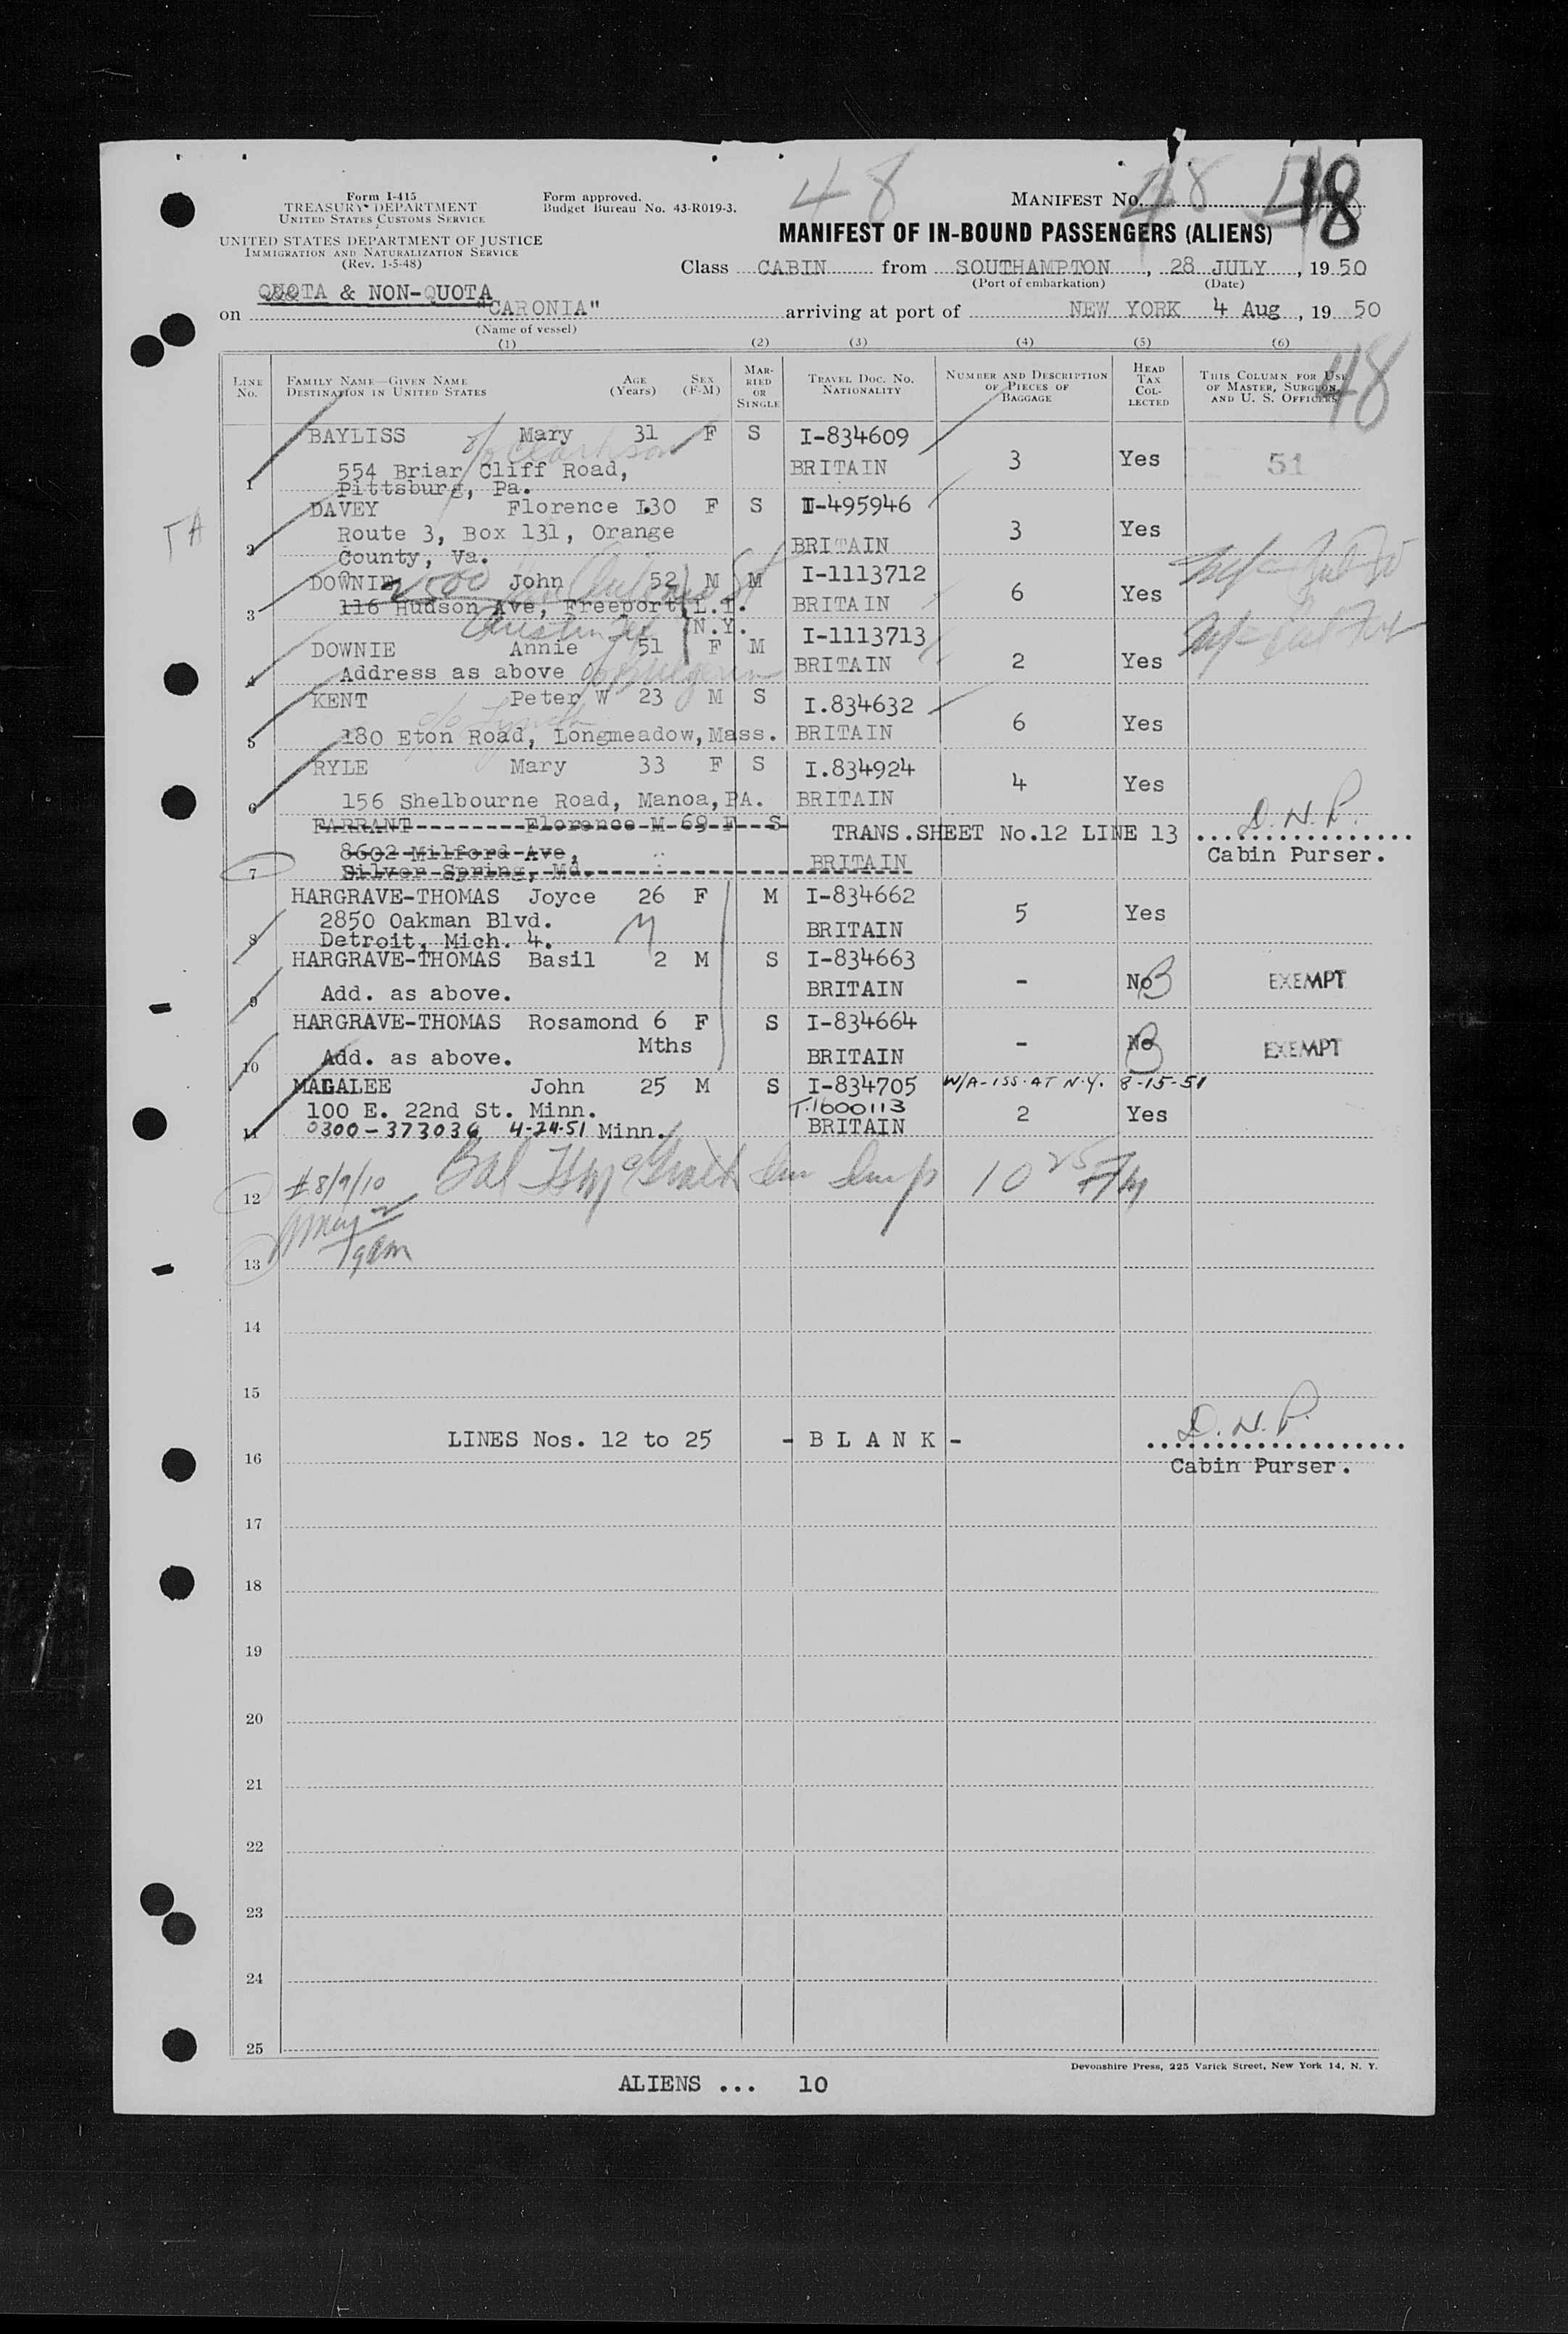 48
Form I-415
TREASURY DEPARTMENT
UNITED STATES CUSTOMS SERVICE
Form approved.
Budget Bureau No. 43-R019-3.
MANIFEST No. 48 18
UNITED STATES DEPARTMENT OF JUSTICE
IMMIGRATION AND NATURALIZATION SERVICE
(Rev. 1-5-48)
MANIFEST OF IN-BOUND PASSENGERS (ALIENS)
Class CABIN from SOUTHAMPTON, 28 JULY, 1950
(Port of embarkation) (Date)
QUOTA & NON-QUOTA
on "CARONIA" arriving at port of NEW YORK 4 Aug, 1950
(Name of vessel)
(1) (2) (3) (4) (5) (6)
LINE No. FAMILY NAME—GIVEN NAME DESTINATION IN UNITED STATES AGE (Years) SEX (F-M) MARRIED OR SINGLE TRAVEL DOC. No. NATIONALITY NUMBER AND DESCRIPTION OF PIECES OF BAGGAGE HEAD TAX COLLECTED THIS COLUMN FOR USE OF MASTER, SURGEON, AND U. S. OFFICERS
48
BAYLISS Mary 31 F S I-834609
c/o Clarkson
1 554 Briar Cliff Road, BRITAIN 3 Yes 51
Pittsburg, Pa.
DAVEY Florence I.30 F S I-495946
TA
2 Route 3, Box 131, Orange BRITAIN 3 Yes
County, Va.
DOWNIE John 52 M M I-1113712
2500 San Antonio St
3 116 Hudson Ave, Freeport L.I. BRITAIN 6 Yes
Austin Tex N.Y.
DOWNIE Annie 51 F M I-1113713
4 Address as above BRITAIN 2 Yes
KENT Peter W 23 M S I.834632
c/o Lynch
5 180 Eton Road, Longmeadow, Mass. BRITAIN 6 Yes
RYLE Mary 33 F S I.834924
6 156 Shelbourne Road, Manoa, PA. BRITAIN 4 Yes
FARRANT Florence M 69 F S TRANS.SHEET No.12 LINE 13 D.N.P.
8602 Milford Ave, Cabin Purser.
7 Silver Spring, Md. BRITAIN
HARGRAVE-THOMAS Joyce 26 F M I-834662
8 2850 Oakman Blvd. M BRITAIN 5 Yes
Detroit, Mich. 4.
HARGRAVE-THOMAS Basil 2 M S I-834663
9 Add. as above. BRITAIN - No EXEMPT
HARGRAVE-THOMAS Rosamond 6 F S I-834664
Mths
10 Add. as above. BRITAIN - No EXEMPT
MAGALEE John 25 M S I-834705 W/A-ISS. AT N.Y. 8-15-51
100 E. 22nd St. Minn. T.1600113 2 Yes
11 0300-373036 4-24-51 Minn. BRITAIN
12 #8/9/10 10 25
13
14
15
LINES Nos. 12 to 25 - B L A N K - D.N.P.
16 Cabin Purser.
17
18
19
20
21
22
23
24
25
Devonshire Press, 225 Varick Street, New York 14, N. Y.
ALIENS ... 10